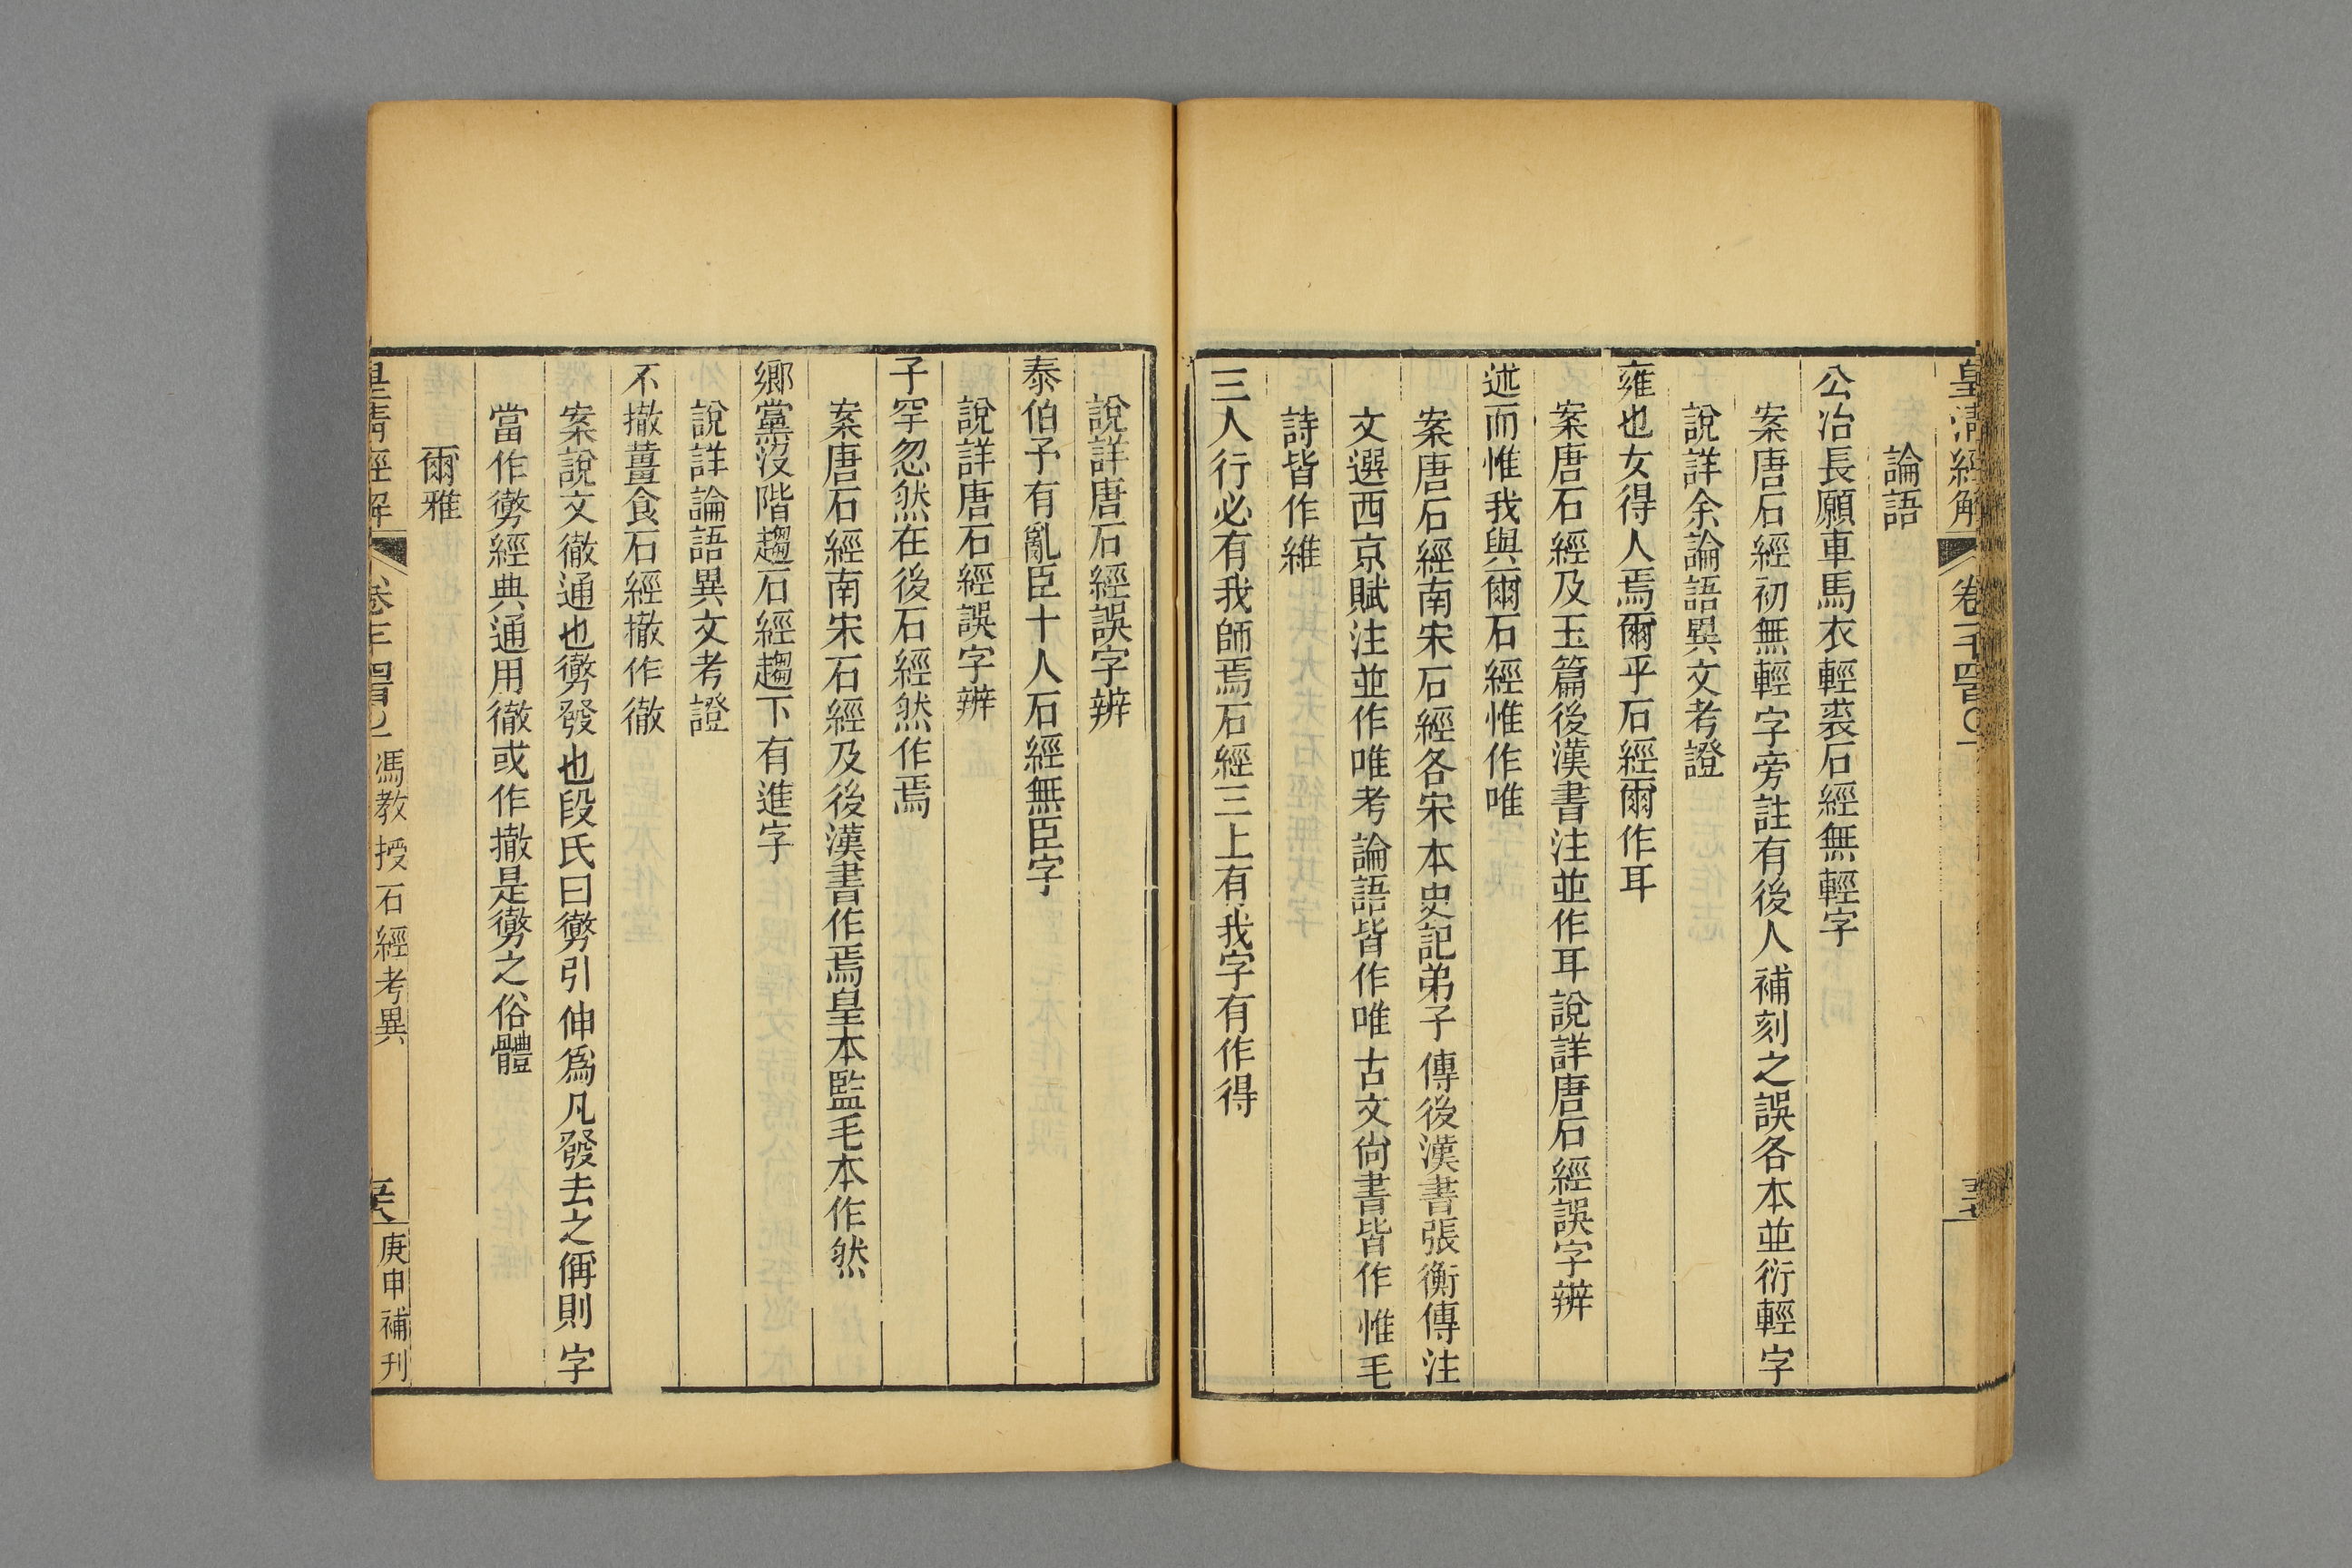 皇清經解
卷一千四百〇一
論語
公冶長願車馬衣輕裘石經無輕字
案唐石經初無輕字旁註有後人補刻之誤各本並衍輕字
說詳余論語異文考證
雍也女得人焉爾乎石經爾作耳
案唐石經及玉篇後漢書注並作耳說詳唐石經誤字辨
述而惟我與爾石經惟作唯
案唐石經南宋石經各宋本史記弟子傳後漢書張衡傳注
文選西京賦注並作唯考論語皆作唯古文尙書皆作惟毛
詩皆作維
三人行必有我師焉石經三上有我字有作得
說詳唐石經誤字辨
泰伯予有亂臣十人石經無臣字
說詳唐石經誤字辨
子罕忽然在後石經然作焉
案唐石經南宋石經及後漢書作焉皇本監毛本作然
鄉黨沒階趨石經趨下有進字
說詳論語異文考證
不撤薑食石經撤作徹
案說文徹通也勶發也段氏曰勶引伸爲凡發去之偁則字
當作勶經典通用徹或作撤是勶之俗體
爾雅
皇清經解
馮教授石經考異
庚申補刊